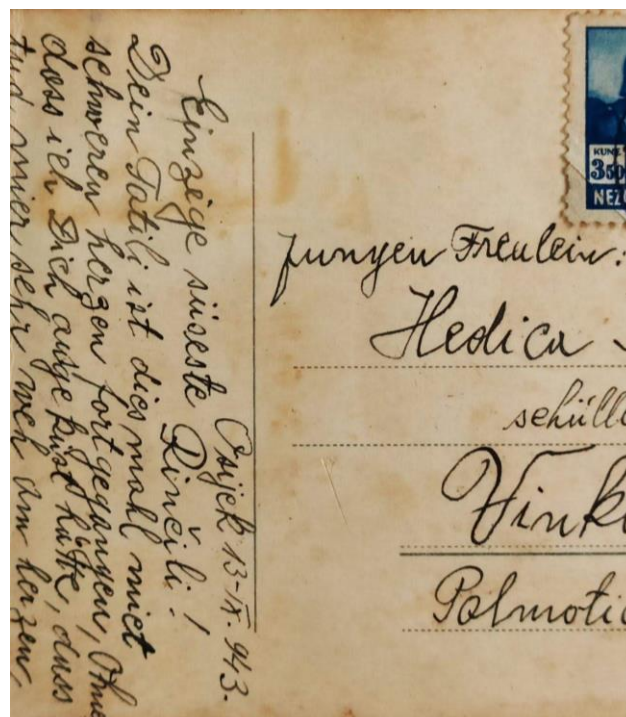 Osijek 13-IX. 943.
Einzige süseste Pinčili!
Dein Tatili ist dies mahl miet
schweren herzen fortgegangen, Ohne
dass ich Dich ausge küst hätte, dass
tud mier sehr weh am herzen,
KUNE
350
NEZ
jungen Freulein:
Hedica
schülle
Vinko
Palmotic